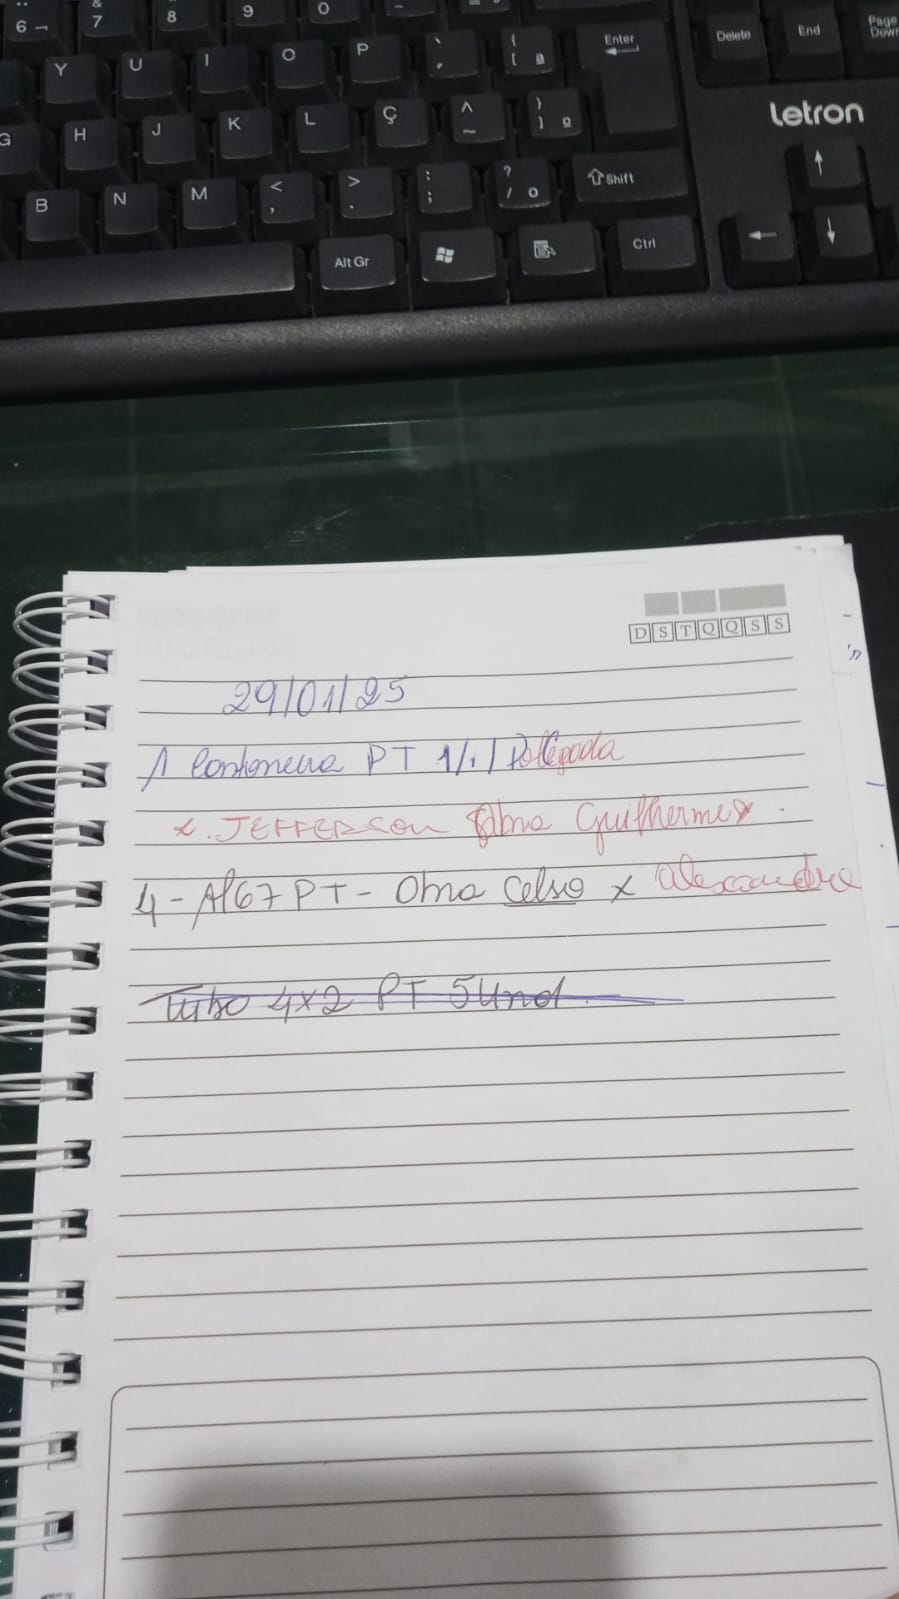 6 ¬
&
7
8
9
0
Y
U
I
O
P
`
´
{
[ ª
Enter
Delete
End
Page
Down
G
H
J
K
L
Ç
^
~
}
] º
Letron
B
N
M
<
,
>
.
:
;
?
/ °
Shift
Alt Gr
Ctrl
D S T Q Q S S
29/01/25
1 Cantoneira PT 1/1/ Polegada
x. JEFFERSON Obra Guilherme x.
4 - AP67 PT - Obra Celso x Alexandre
Tubo 4x2 PT 5 Und.